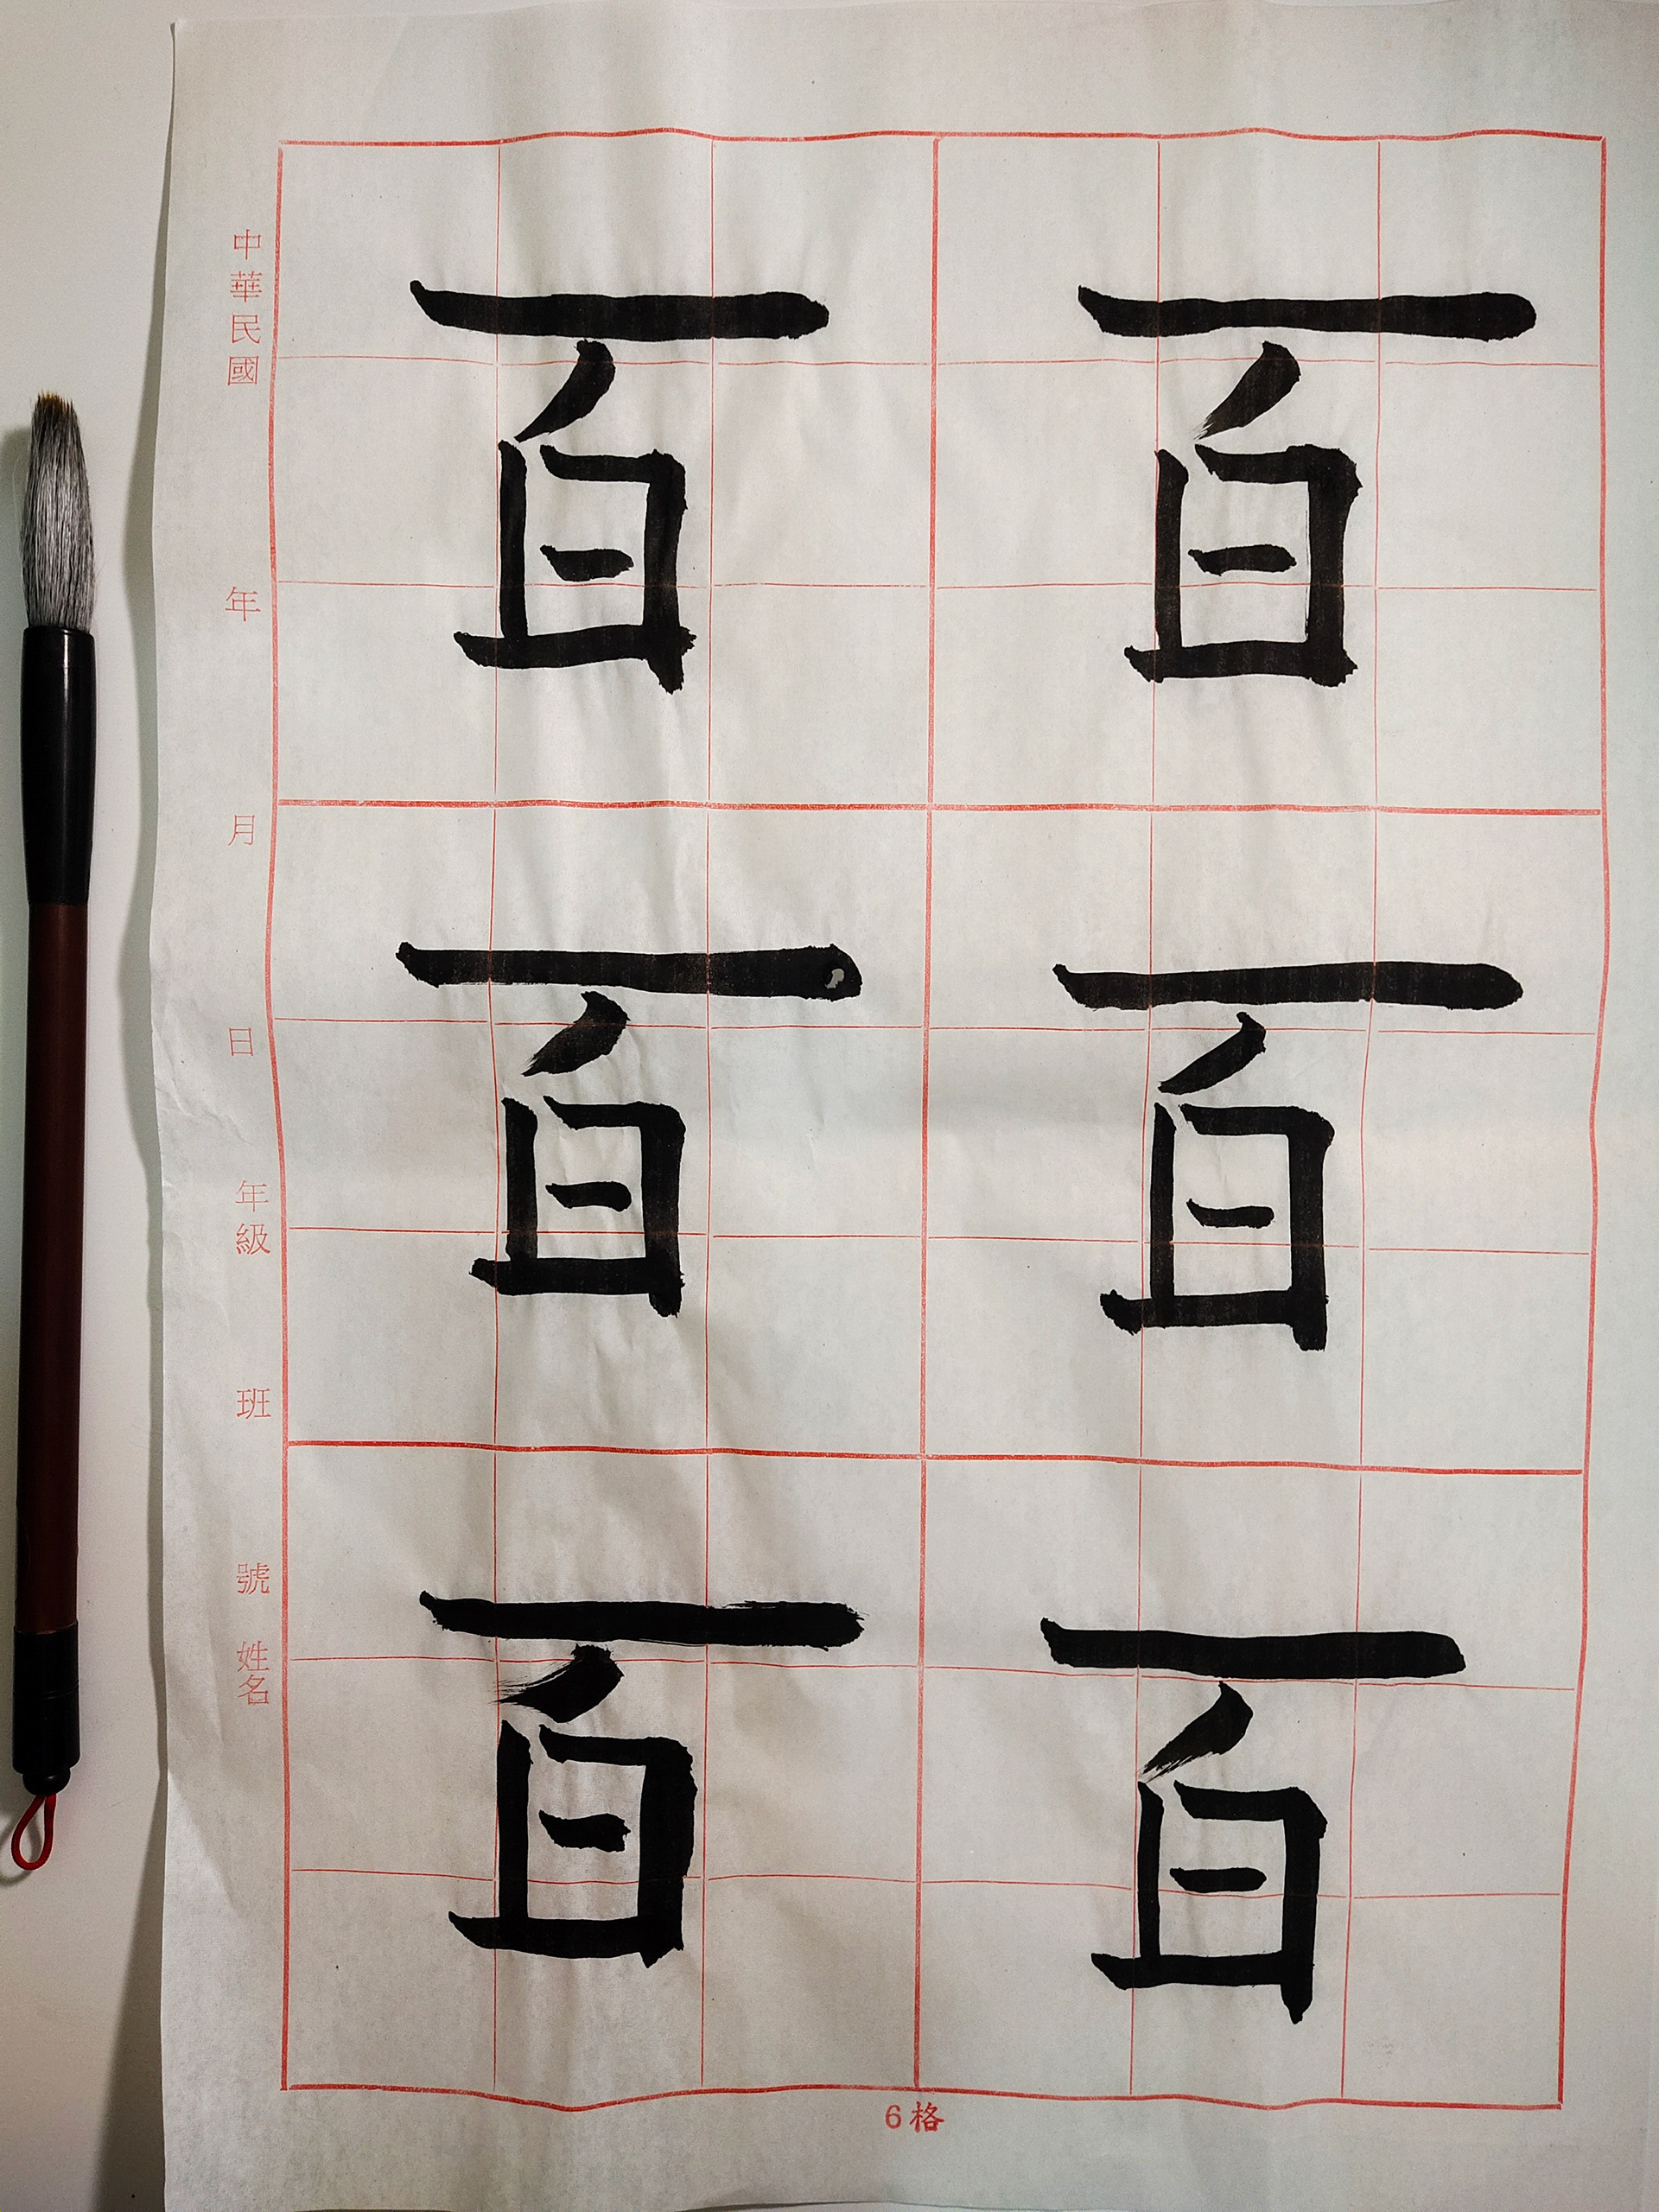 百百百
百百百
中華民國 年 月 日 年級 班 號 姓名
6格